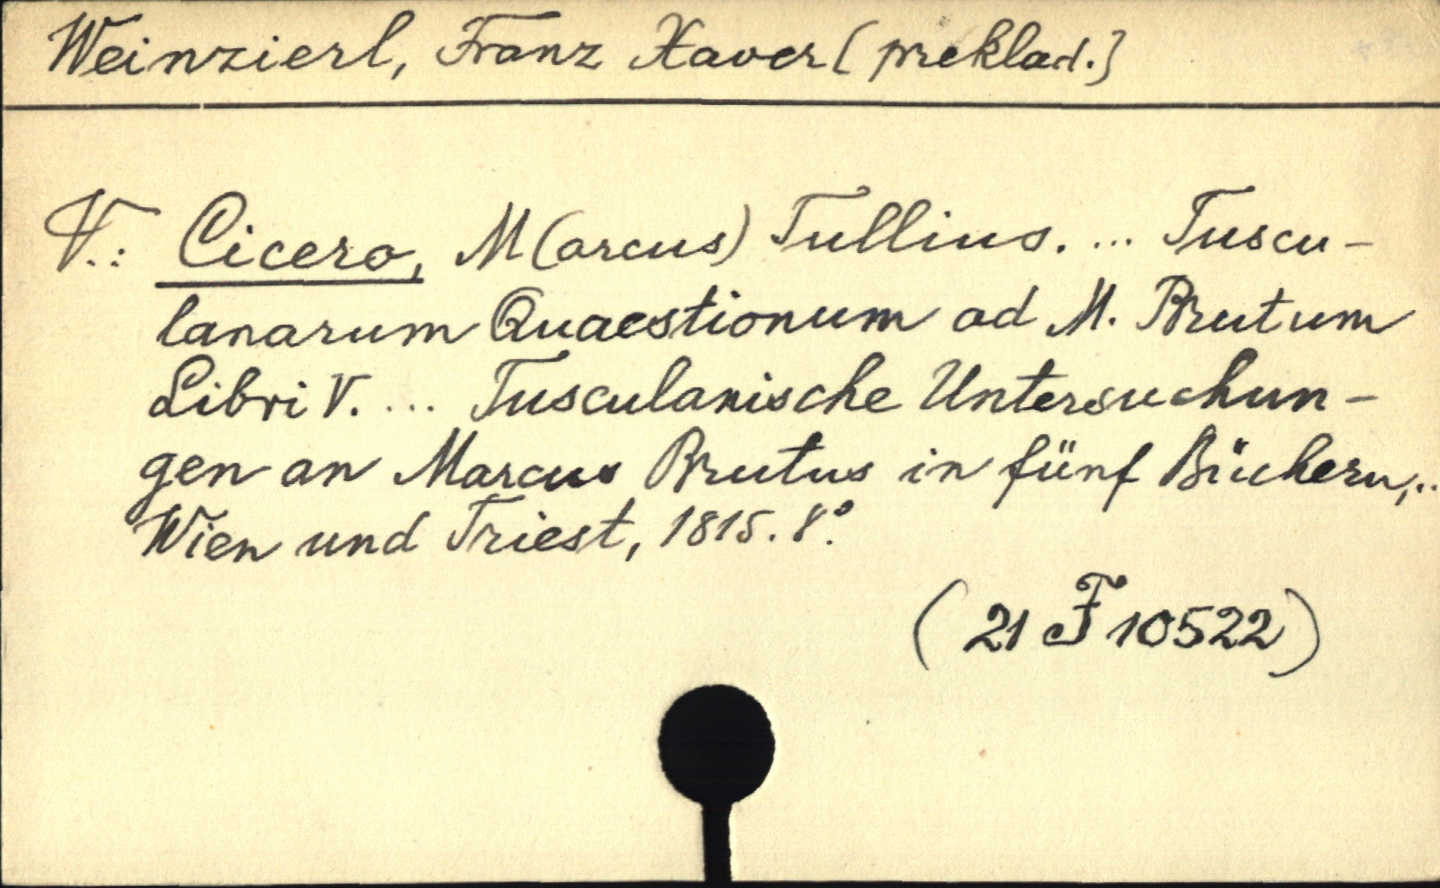 Weinzierl, Franz Xaver [preklad.]
V.: Cicero, M(arcus) Tullius. ... Tuscu-
lanarum Quaestionum ad M. Brutum
Libri V. ... Tusculanische Untersuchun-
gen an Marcus Brutus in fünf Büchern,..
Wien und Triest, 1815. 8°.
(21 F 10522)